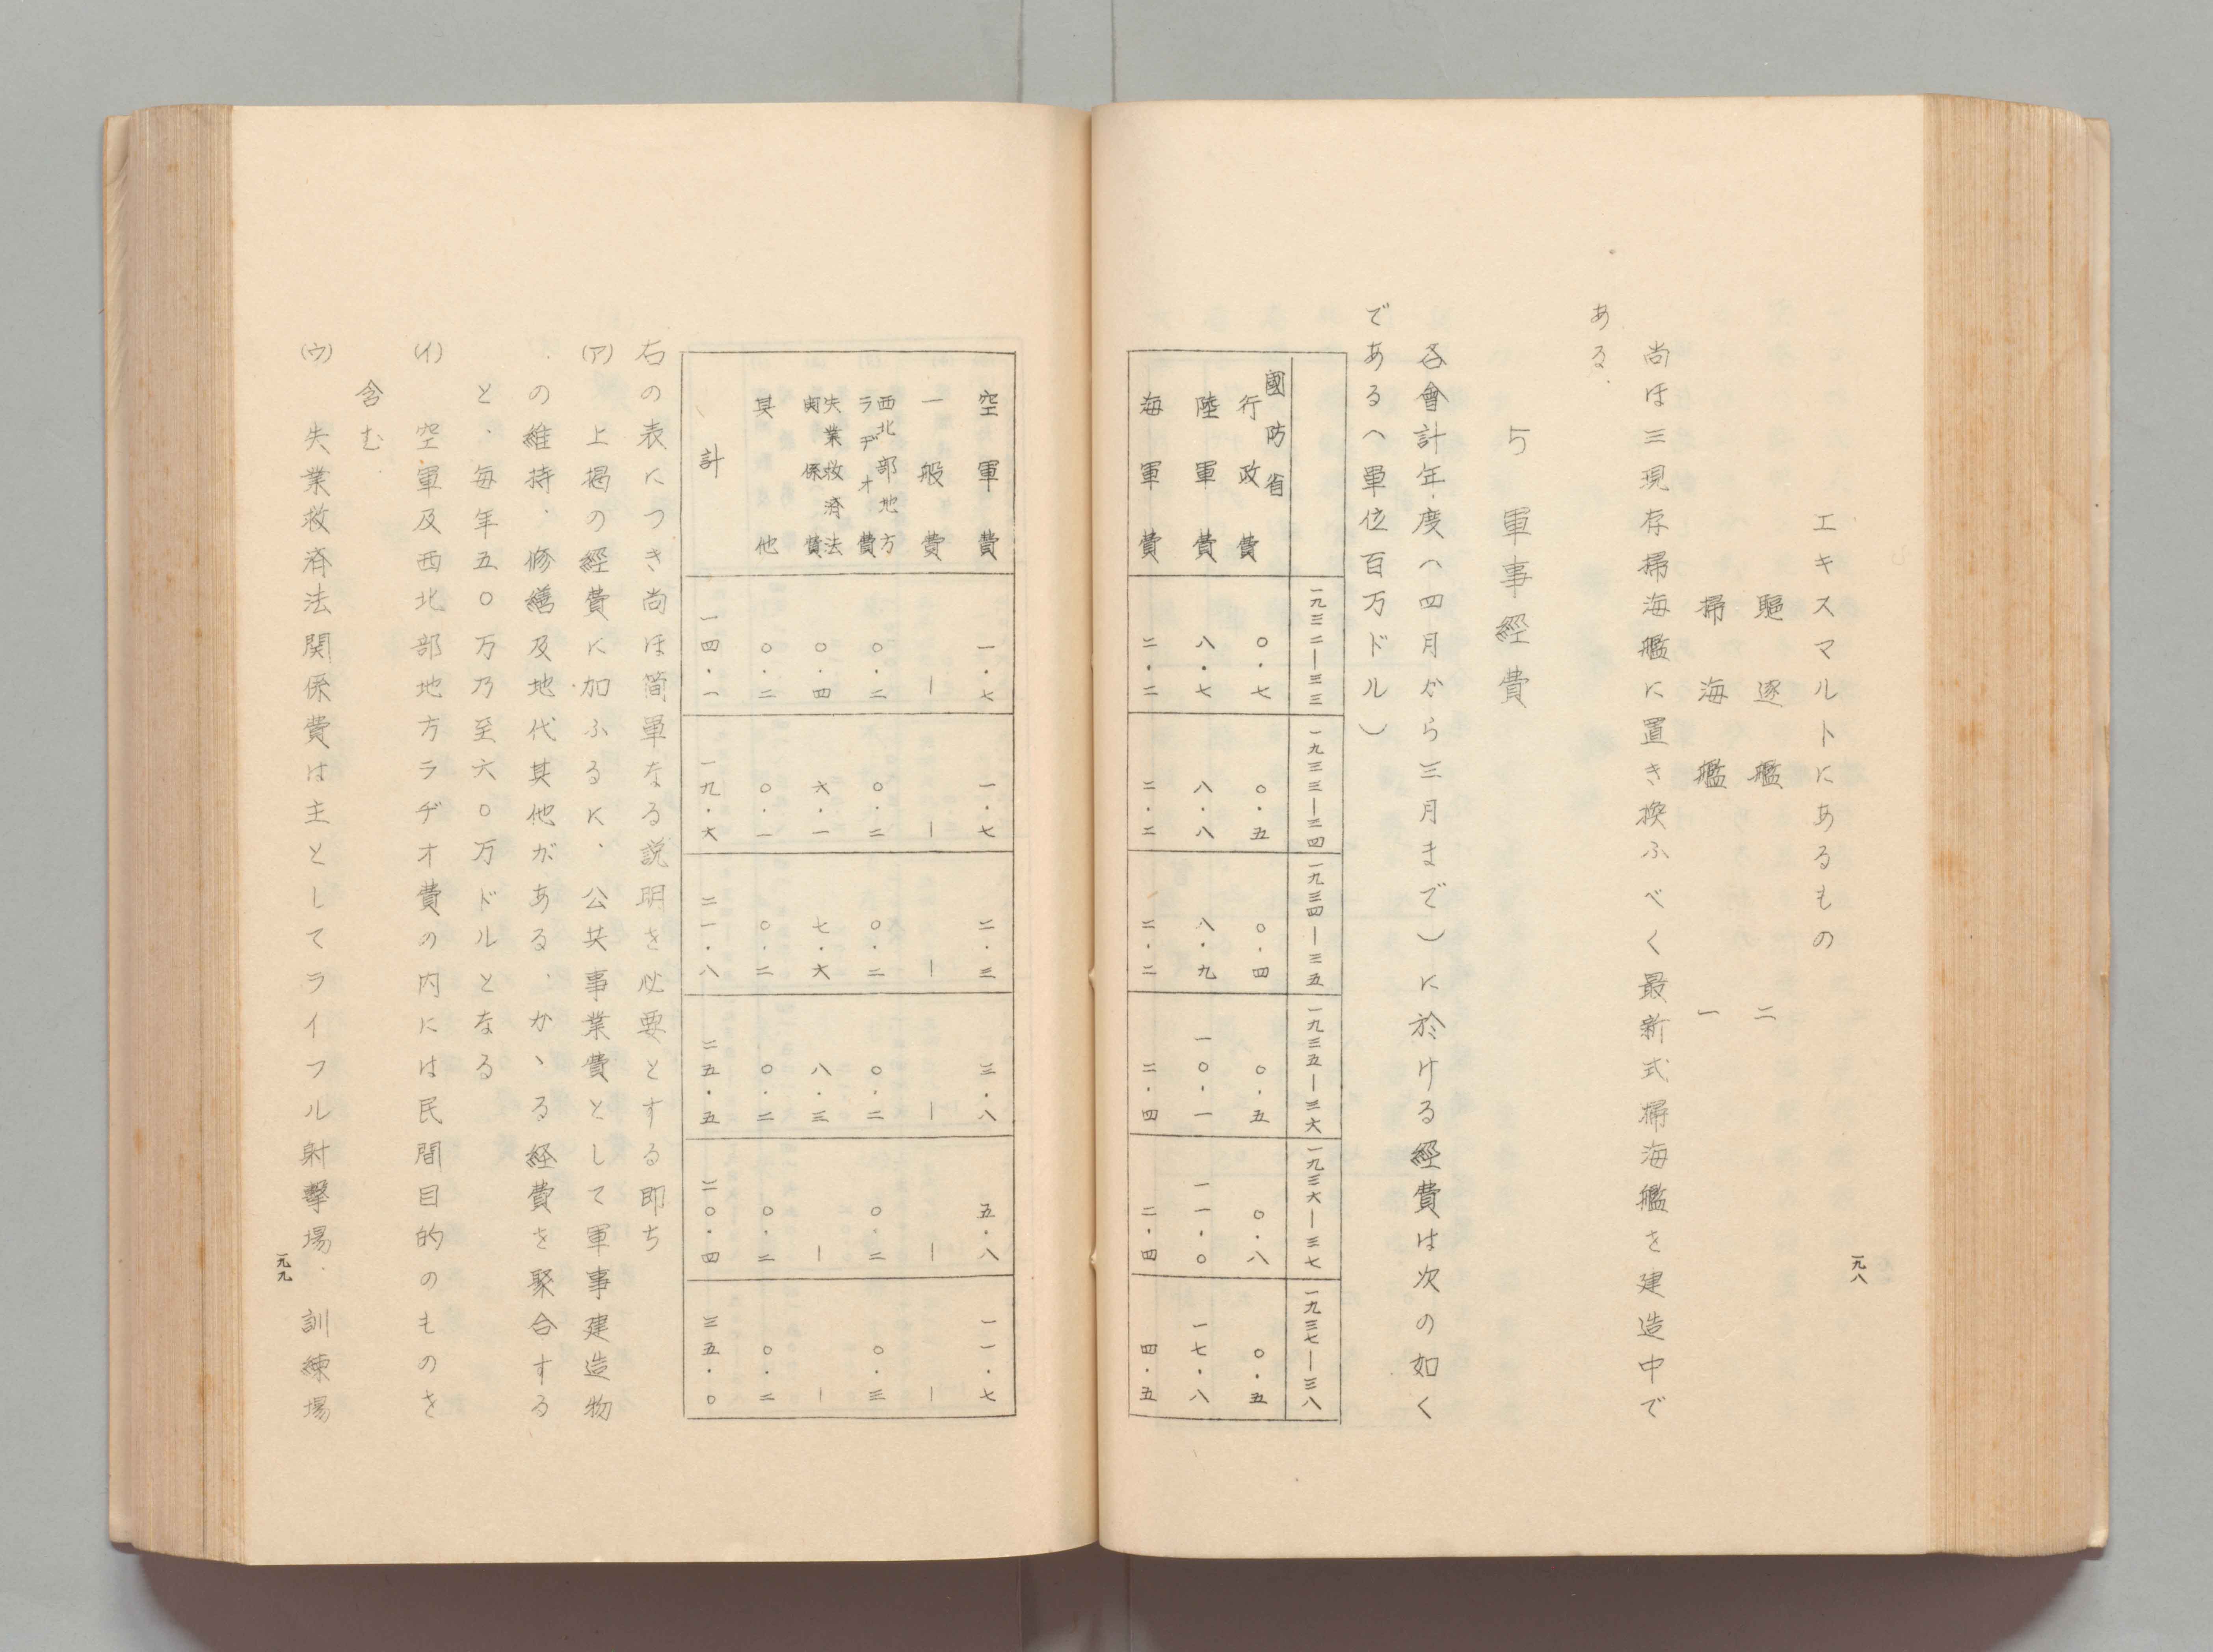 エキスマルトにあるもの
驅逐艦 二
掃海艦 一
尚ほ三現存掃海艦に置き換ふべく最新式掃海艦を建造中で
ある、
5 軍事經費
各會計年度(四月から三月まで)に於ける經費は次の如く
である(單位百万ドル)
一九三二―三三 一九三三―三四 一九三四―三五 一九三五―三六 一九三六―三七 一九三七―三八
國防省行政費 〇・七 〇・五 〇・四 〇・五 〇・八 〇・五
陸軍費 八・七 八・八 八・九 一〇・一 一一・〇 一七・八
海軍費 二・二 二・二 二・二 二・四 二・四 四・五
一九八
空軍費 一・七 一・七 二・三 三・八 五・八 一一・七
一般費 ― ― ― ― ― ―
西北部地方ラヂオ費 〇・二 〇・二 〇・二 〇・二 〇・二 〇・三
失業救済法関係費 〇・四 六・一 七・六 八・三 ― ―
其他 〇・二 〇・一 〇・二 〇・二 〇・二 〇・二
計 一四・一 一九・六 二一・八 二五・五 二〇・四 三五・〇
右の表につき尚ほ简單なる説明を必要とする即ち
(ア) 上掲の經費に加ふるに、公共事業費として軍事建造物
の維持、修繕及地代其他がある、かゝる経費を聚合する
と、毎年五〇万乃至六〇万ドルとなる
(イ) 空軍及西北部地方ラヂオ費の内には民間目的のものを
含む
(ウ) 失業救済法関係費は主としてライフル射擊場、訓練場
一九九